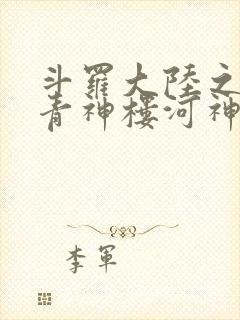 斗羅大陸之
青神樓河神
李軍